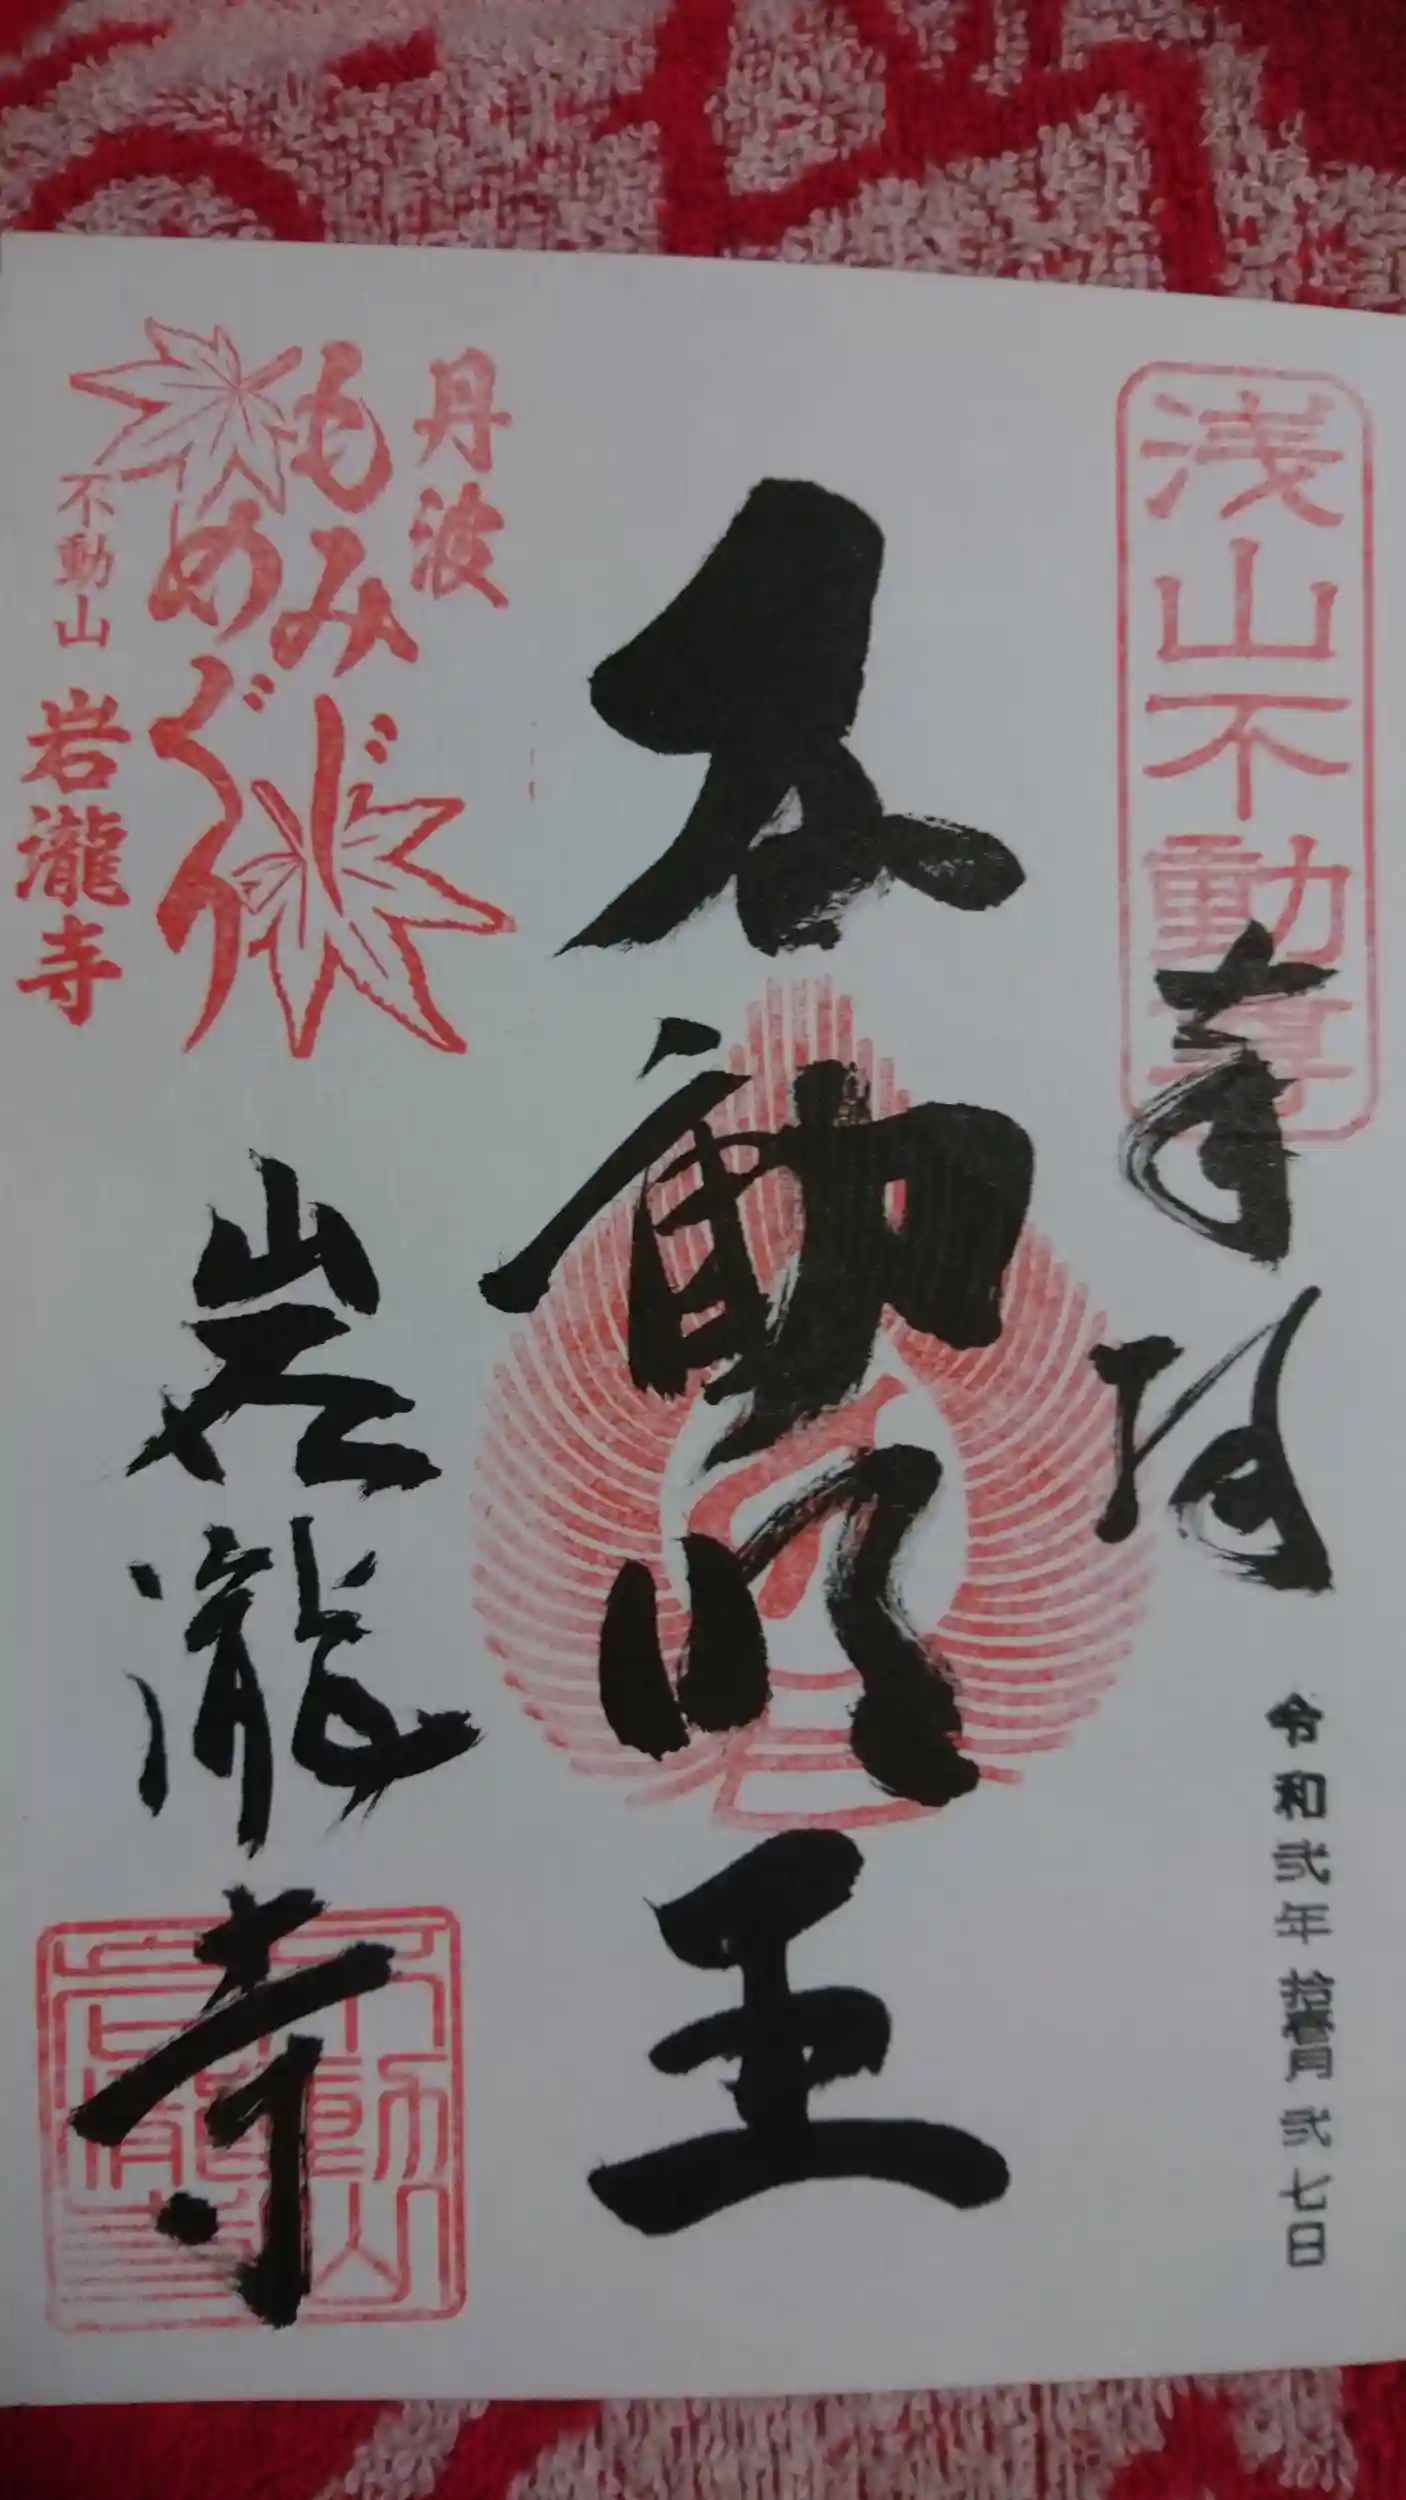 浅山不動尊
奉拝
令和弐年拾壹月弐七日
不動明王
丹波
もみじ
めぐり
不動山 岩瀧寺
岩瀧寺
不動山
岩瀧寺